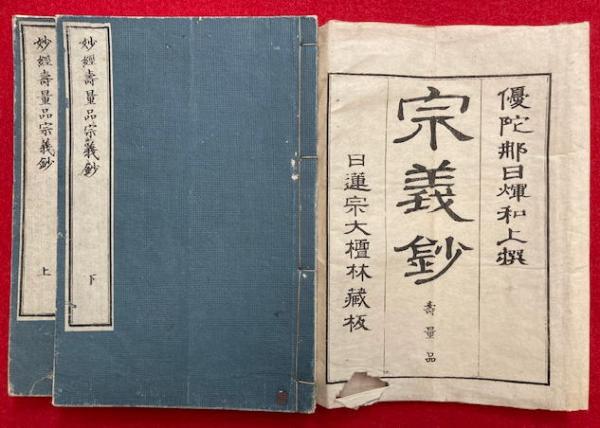 優陀那日輝和上撰
宗義鈔
壽量品
日蓮宗大檀林藏板
妙經壽量品宗義鈔
下
妙經壽量品宗義鈔
上